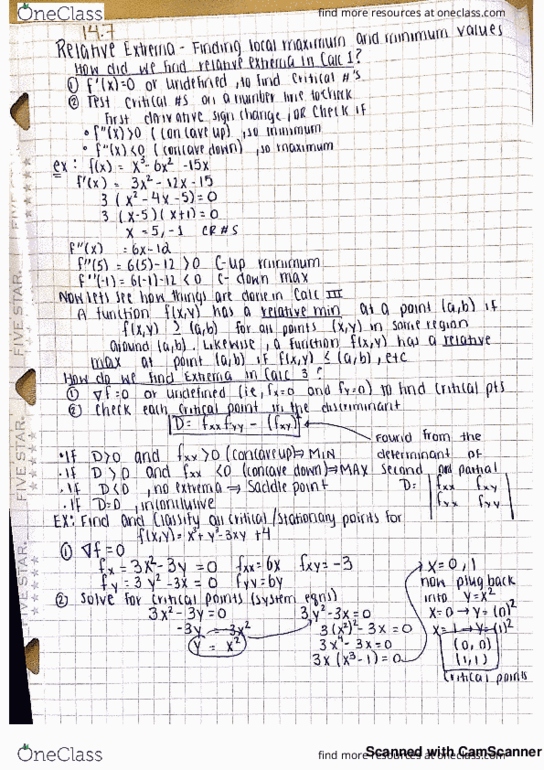 OneClass
find more resources at oneclass.com
14.7
Relative Extrema - Finding local maximum and minimum values
How did we find relative extrema in Calc 1?
① f'(x)=0 or undefined, to find critical #'s
② Test critical #s on a number line to check
first derivative sign change, OR check if
• f"(x)>0 (concave up), so minimum
• f"(x)<0 (concave down), so maximum
ex: f(x) = x³-6x²-15x
f'(x) = 3x²-12x-15
3(x²-4x-5)=0
3(x-5)(x+1)=0
x=5,-1 CR#S
f"(x) = 6x-12
f"(5) = 6(5)-12 >0 C-up minimum
f"(-1) = 6(-1)-12 <0 C-down max
Now lets see how things are done in Calc III
A function f(x,y) has a relative min at a point (a,b) if
f(x,y) ≥ (a,b) for all points (x,y) in some region
around (a,b). Likewise, a function f(x,y) has a relative
max at point (a,b) if f(x,y) ≤ (a,b), etc
How do we find Extrema in Calc 3?
① ∇f=0 or undefined (ie, fx=0 and fy=0) to find critical pts
② Check each critical point in the discriminant
D = fxx fyy - (fxy)²
found from the
• If D>0 and fxx >0 (concave up)⇒ MIN
determinant of
• If D>0 and fxx <0 (concave down)⇒MAX
second partial
• If D<0, no extrema ⇒ Saddle point
D= | fxx fxy
fxy fyy |
• If D=0, inconclusive
EX: Find and Classify all critical/stationary points for
f(x,y)=x³+y³-3xy+4
① ∇f=0
fx = 3x²-3y =0 fxx=6x fxy=-3
fy = 3y²-3x =0 fyy=6y
② Solve for critical points (system eqns)
3x²-3y=0
-3y = -3x²
y = x²
3y²-3x=0
3(x²)²-3x=0
3x⁴-3x=0
3x(x³-1)=0
x=0,1
now plug back
into y=x²
x=0→y=(0)²
x=1→y=(1)²
(0,0)
(1,1)
critical points
OneClass
find more resources at oneclass.com
Scanned with CamScanner